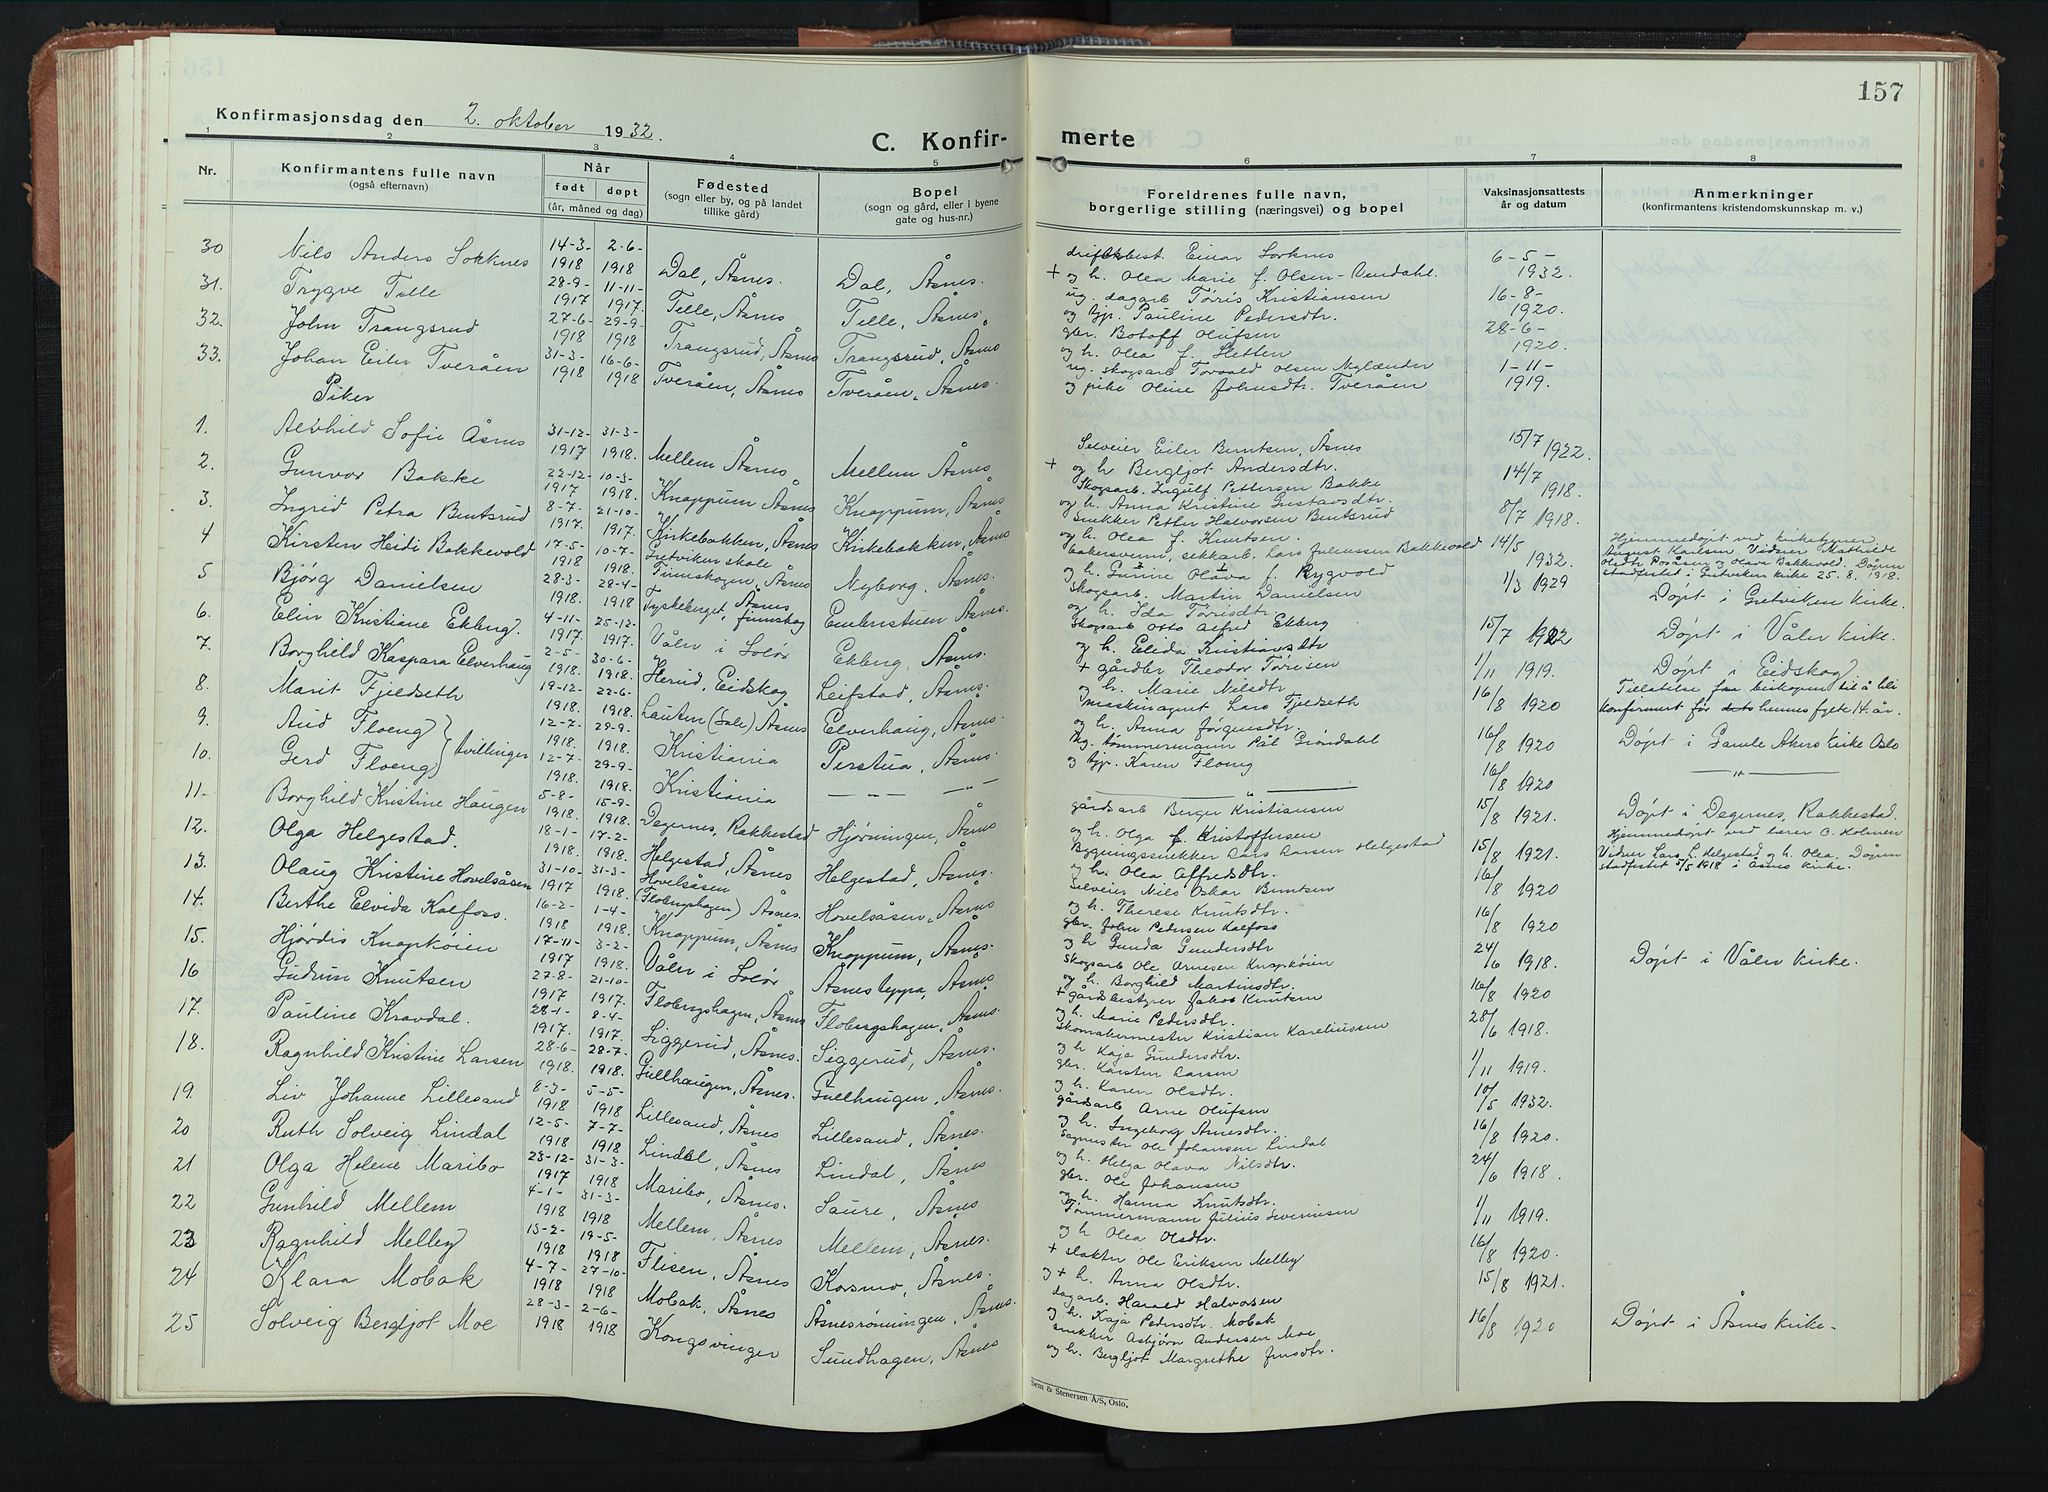 157
Konfirmasjonsdag den 2. oktober 1932.
C. Konfir- merte
1 2 3 4 5 6 7 8
Nr.
Konfirmantens fulle navn
(også efternavn)
Når
født døpt
(år, måned og dag)
Fødested
(sogn eller by, og på landet
tillike gård)
Bopel
(sogn og gård, eller i byene
gate og hus-nr.)
Foreldrenes fulle navn,
borgerlige stilling (næringsvei) og bopel
Vaksinasjonsattests
år og datum
Anmerkninger
(konfirmantens kristendomskunnskap m. v.)
30 Nils Anders Sorknes 14-3-1918 2-6-1918 Dal, Åsnes. Dal, Åsnes. driftsbest. Einar Sorknes 6-5-1932.
+ og h. Olea Marie f. Olsen-Vendahl.
31. Trygve Telle 28-9-1917 11-11-1917. Telle, Åsnes Telle, Åsnes. ug. dagarb Tørris Kristiansen 16-8-1920.
og pp. Pauline Pedersdtr.
32. John Trangsrud 27-6-1918 29-9-1918 Trangsrud, Åsnes Trangsrud, Åsnes gbr. Botolf Olufsen 28-6-1920.
og h. Olea f. Sletten
33. Johan Eiler Tveråen 31-3-1918 16-6-1918 Tveråen, Åsnes Tveråen, Åsnes. ug. skogsarb Torvald Olsen Nylænder 1-11-1919.
og pike Oline Johnsdtr. Tveråen
Piker
1. Alvhild Sofie Åsnes 31-12-1917 31-3-1918. Mellem Åsnes Mellem Åsnes Selveier Eiler Berntsen, Åsnes 15/7 1922.
+ og h Bergljot Andersdtr.
2. Gunvor Bakke 22-12-1917 10-3-1918. Knappum, Åsnes Knappum, Åsnes Skogsarb. Ingulf Pettersen Bakke 14/7 1918.
og h. Anna Kristine Gustavsdtr.
3. Ingrid Petra Bentsrud 8-7-1917. 21-10-1917. Kirkebakken, Åsnes Kirkebakken, Åsnes snekker Petter Halvorsen Bentsrud 8/7 1918.
og h. Olea f. Knutsen
4 Kirsten Heidi Bakkevold 17-5-1918 10-7-1918. Gretviken skole Finnskogen, Åsnes Nyborg, Åsnes bakersvenn, sekkarb. Lars Juliussen Bakkevold 14/5 1932. Hjemmedøpt ved kirketjener
August Karlsen Vidner Mathilde
Olsdtr Posåsen og Olava Bakkevold. Dåpen
stadfestet i Gretviken kirke 25. 8. 1918.
og h. Gunine Olava f. Rygvold
5 Bjørg Danielsen 28-3-1918. 28-4-1918 Tyskeberget, Åsnes finnskog Embretstuen Åsnes. Skogsarb. Martin Danielsen 1/3 1929 Døpt i Gretviken kirke.
og h. Ida Tørrisdtr.
6. Elin Kristiane Ekberg. 4-11-1917 25-12-1917. Våler i Solør Ekberg, Åsnes. Skogsarb Otto Alfred Ekberg 15/7 1922 Døpt i Våler kirke.
og h. Elida Kristiansdtr
7. Borghild Kaspara Elverhaug 2-5-1918. 30-6-1918. Herud, Eidskog Leifstad, Åsnes. + gårdbr Theodor Tørresen 1/11 1919. Døpt i Eidskog.
og h. Marie Nilsdtr
8. Marit Fjeldseth 19-12-1918 22-6-1918. Lauten (Sole) Åsnes Elverhaug, Åsnes. Maskinagent Lars Fjeldseth 16/8 1920 Tillatelse fra biskopen til å bli
konfirmert før hennes fylte 14. år.
og h. Anna Jørgensdtr.
9. Aud Floeng } tvillinger 12-7-1918. 29-9-1918 Kristiania Perstua, Åsnes. Ug. tømmermann Pål Grøndahl 16/8 1920 Døpt i Gamle Akers kirke Oslo
og pp. Karen Floeng
10. Gerd Floeng 12-7-1918. 29-9-1918. Kristiania — „ — — „ — — „ — 16/8 1920 — „ —
11. Borghild Kristine Haugen 5-8-1918 15-9-1918. Degernes, Rakkestad Hjørningen, Åsnes gårdsarb Berger Kristiansen 15/8 1921. Døpt i Degernes, Rakkestad.
og h. Olga f. Kristoffersen
12. Olga Helgestad. 18-1-1918. 17-2-1918. Helgestad, Åsnes Helgestad, Åsnes. Bygningssnekker Lars Larsen Helgestad 15/8 1921. Hjemmedøpt ved lærer O. Holmen
Vidner Lars L. Helgestad og h. Olea. Dåpen
stadfestet 5/5 1918 i Åsnes kirke.
og h. Olea Alfredsdtr.
13. Olaug Kristine Hovelsåsen 31-10-1917 31-3-1918. Hovelsåsen (Flobergshagen) Åsnes. Hovelsåsen, Åsnes Selveier Nils Oskar Berntsen 16/8 1920
og h. Therese Knutsdtr.
14. Berthe Elvida Kalfoss. 16-2-1918 1-4-1918. Knappum, Åsnes Knappum, Åsnes. gbr. John Pedersen Kalfoss 16/8 1920
og h Gunda Gundersdtr
15. Hjørdis Knapkøien 17-11-1917 3-2-1918. Våler i Solør Åsnes leppa, Åsnes Skogsarb Ole Arnesen Knapkøien 24/6 1918. Døpt i Våler kirke.
og h. Borghild Martinsdtr.
16 Gudrun Knutsen 27-8-1917 21-10-1917. Flobergshagen, Åsnes Flobergshagen, Åsnes. + gårdsbestyrer Jakob Knutsen 16/8 1920
og h. Marie Pedersdtr.
17. Pauline Kravdal. 28-1-1917. 8-4-1917. Siggerud, Åsnes. Siggerud, Åsnes. Skomakermester Kristian Kareliussen 28/6 1918.
og h Kaja Gundersdtr.
18. Ragnhild Kristine Larsen 28-6-1918. 28-7-1918. Gullhaugen, Åsnes. Gullhaugen, Åsnes. gbr. Karsten Larsen 1/11 1919.
og h. Karen Olsdtr.
19. Liv Johanne Lillesand 8-3-1918 5-5-1918 Lillesand, Åsnes Lillesand, Åsnes. gårdsarb Arne Olufsen 10/5 1932.
og h. Ingeborg Arnesdtr.
20 Ruth Solveig Lindal 12-5-1918 7-7-1918 Lindal, Åsnes Lindal, Åsnes Sagmester Ole Johansen Lindal 16/8 1920.
og h. Helga Olava Nilsdtr.
21 Olga Helene Maribo 23-12-1917 31-3-1918 Maribo, Åsnes. Saure, Åsnes gbr. Ole Johansen 24/6 1918.
og h. Hanna Knutsdtr.
22 Gunhild Mellem 4-1-1918 31-3-1918 Mellem, Åsnes Mellem, Åsnes. Tømmermann Julius Severinsen 1/11 1919.
og h Olea Olsdtr.
23 Ragnhild Melley 13-2-1918 19-5-1918 Flisen, Åsnes Korsmo, Åsnes. + slakter Ole Eriksen Melley 16/8 1920.
og + h. Anna Olsdtr.
24 Klara Mobak 4-7-1918 27-10-1918 Mobak, Åsnes Åsnesrønningen, Åsnes. dagarb. Harald Halvorsen 15/8 1921.
og h. Kaja Pedersdtr. Mobak
25 Solveig Bergljot Moe 28-3-1918 2-6-1918 Kongsvinger Sundhagen, Åsnes snekker Asbjørn Andersen Moe 16/8 1920 Døpt i Åsnes kirke.
og h. Bergljot Margrethe Jensdtr.
Sem & Stenersen A/S, Oslo.